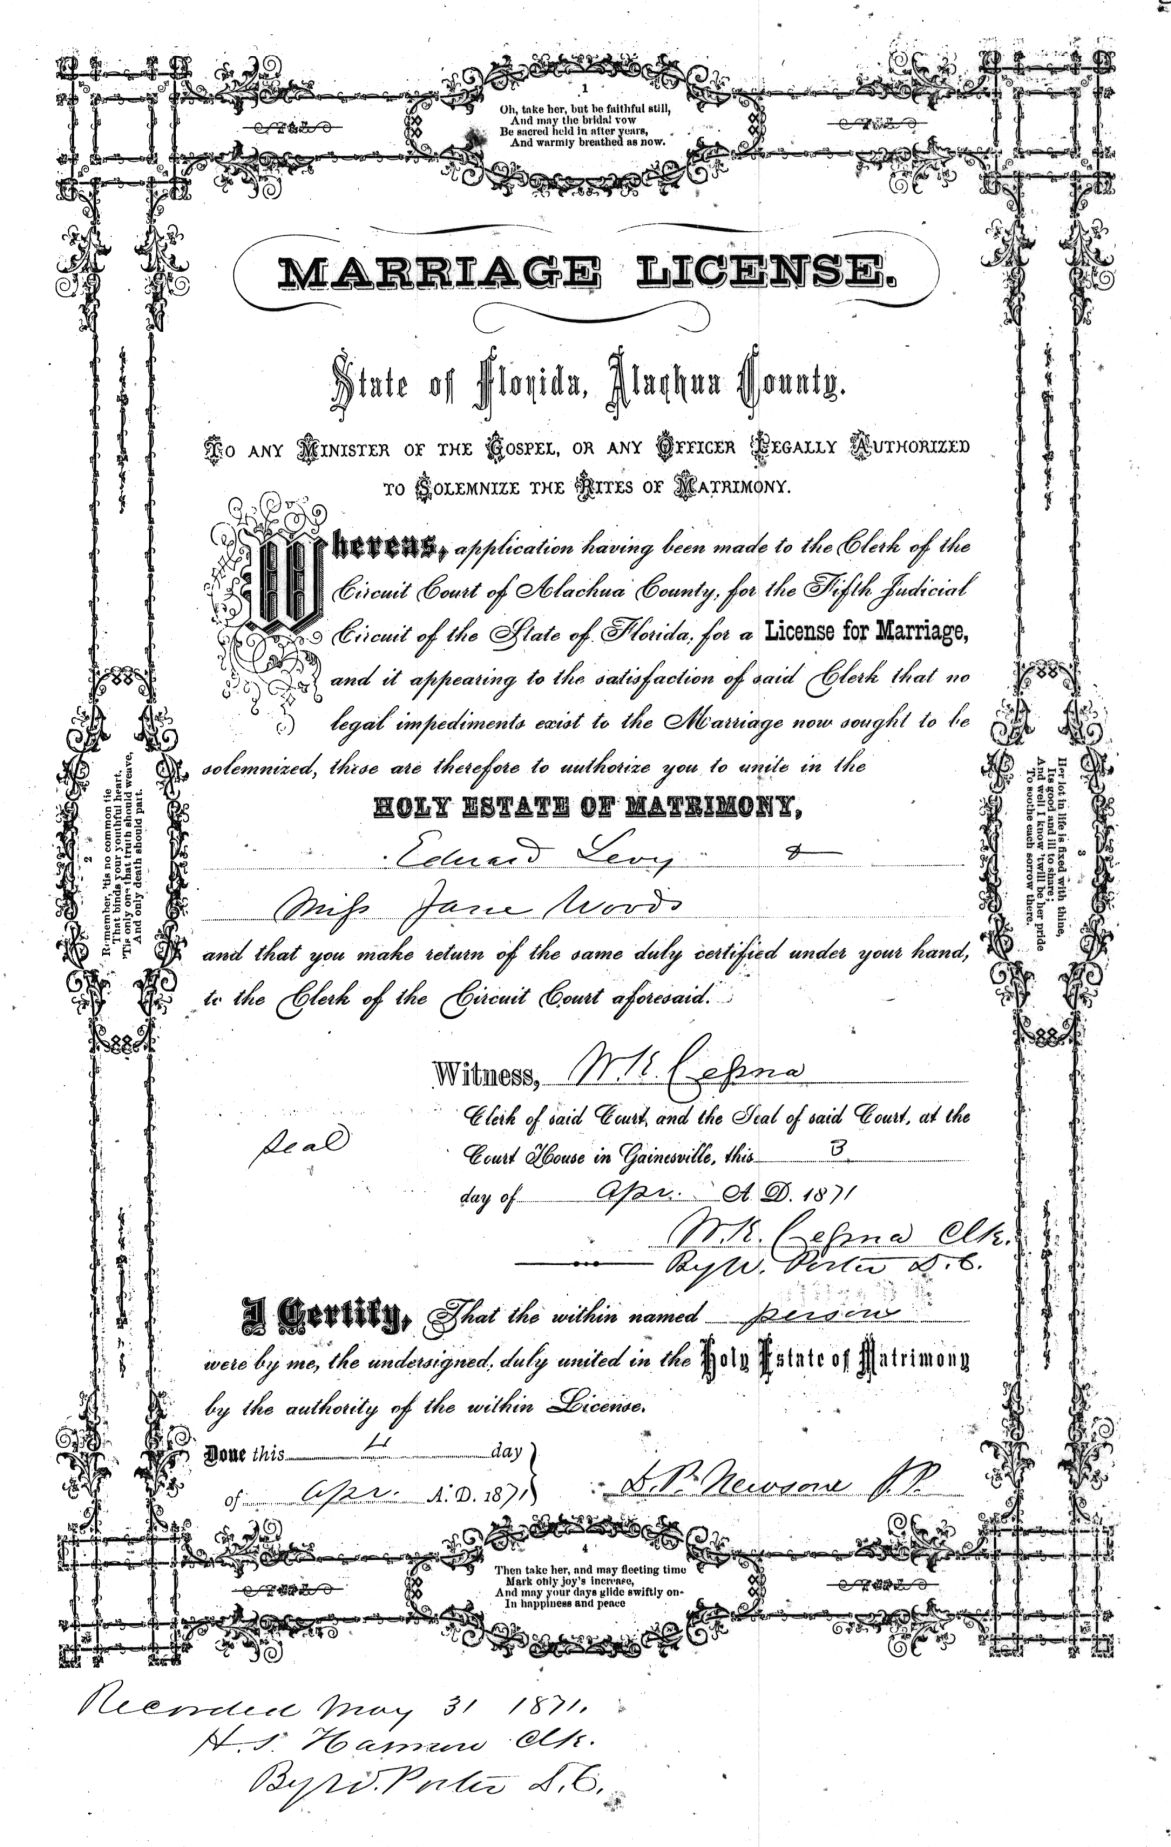 1
Oh, take her, but be faithful still,
And may the bridal vow
Be sacred held in after years,
And warmly breathed as now.
MARRIAGE LICENSE.
State of Florida, Alachua County.
TO ANY MINISTER OF THE GOSPEL, OR ANY OFFICER LEGALLY AUTHORIZED
TO SOLEMNIZE THE RITES OF MATRIMONY.
Whereas, application having been made to the Clerk of the
Circuit Court of Alachua County, for the Fifth Judicial
Circuit of the State of Florida, for a License for Marriage,
and it appearing to the satisfaction of said Clerk that no
legal impediments exist to the Marriage now sought to be
solemnized, these are therefore to authorize you to unite in the
HOLY ESTATE OF MATRIMONY,
Edward Levy &
Miss Jane Woods
and that you make return of the same duly certified under your hand,
to the Clerk of the Circuit Court aforesaid.
Witness, W. K. Cessna
Clerk of said Court, and the Seal of said Court, at the
seal
Court House in Gainesville, this 3
day of Apr. A. D. 1871
W. K. Cessna Clk.
By W. Porter D. C.
I Certify, That the within named persons
were by me, the undersigned, duly united in the Holy Estate of Matrimony
by the authority of the within License.
Done this 4 day
of Apr. A. D. 1871
D. P. Newsone J. P.
2
Remember, 'tis no common tie
That binds your youthful heart,
'Tis only one that truth should weave,
And only death should part.
3
Her lot in life is fixed with thine,
Its good and ill to share;
And well I know 'twill be her pride
To soothe each sorrow there.
4
Then take her, and may fleeting time
Mark only joy's increase,
And may your days glide swiftly on-
In happiness and peace
Recorded May 31 1871.
H. S. Clk.
By W. Porter D. C.